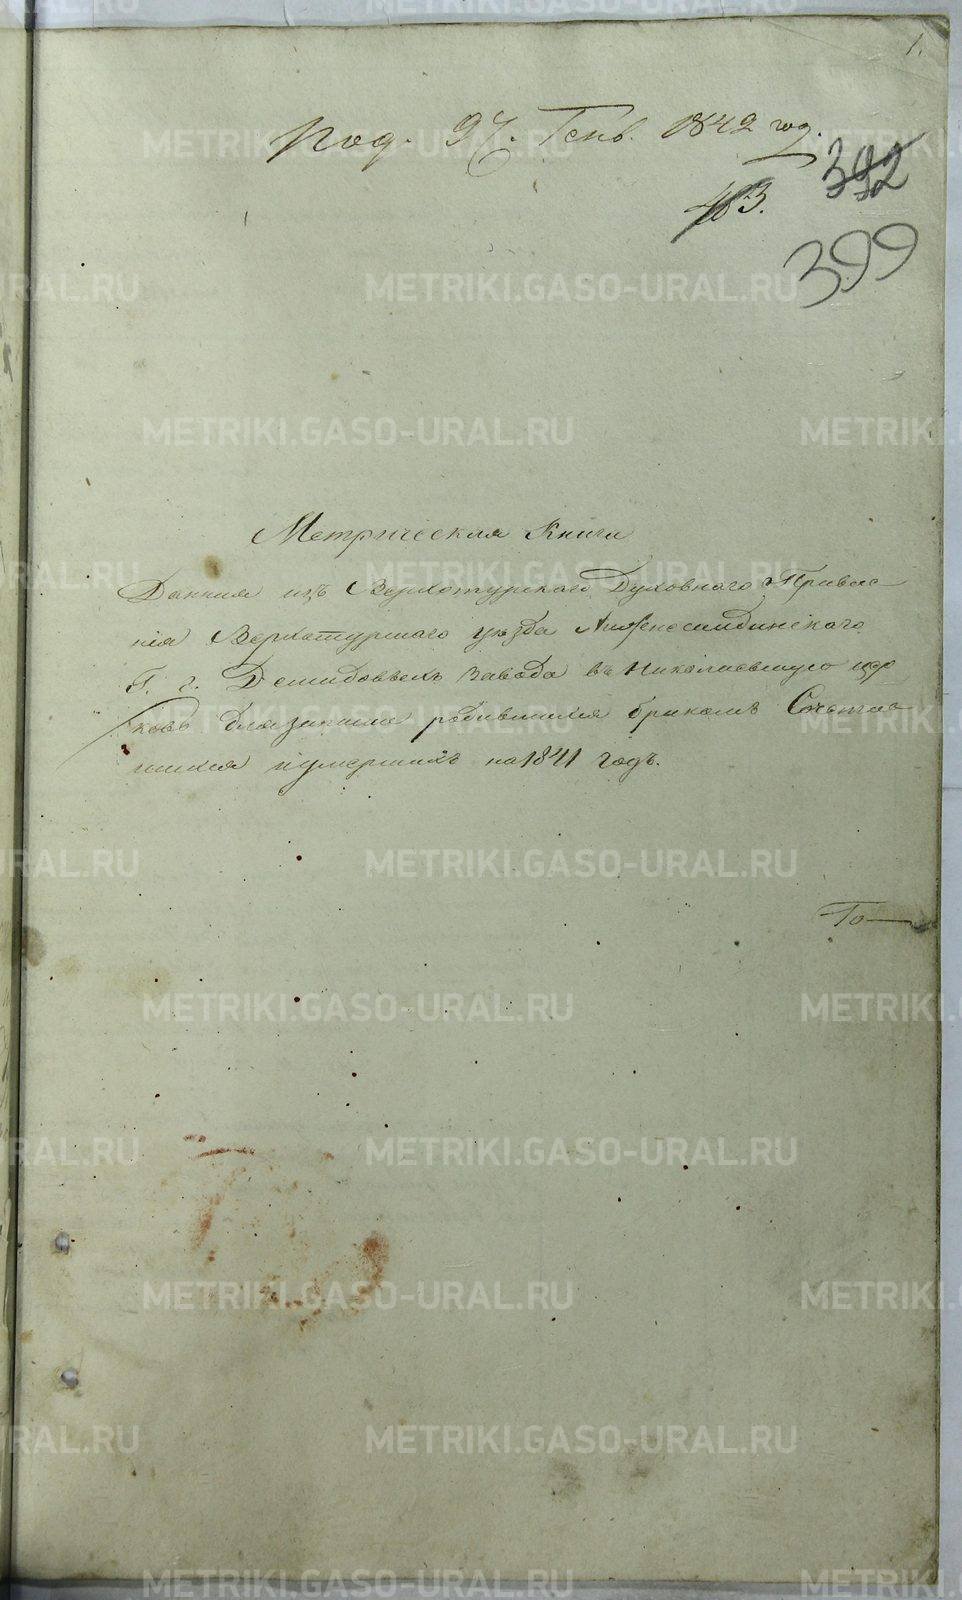 1.
Под. 27. Генв. 1842 год.
392
403.
399
Метрическая Книга
Данная изъ Верхотурскаго Духовнаго Правле
нія Верхотурскаго уѣзда Нижнесалдинскаго
Г. г. Демидовыхъ завода въ Николаевскую цер
ковь для записки родившихся бракомъ Сочетав
шихся и умершихъ на 1841 годъ.
По
METRIKI.GASO-URAL.RU